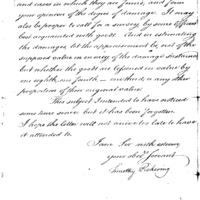 and cases in which they are found, and form
your opinion of the degree of damage. It may
also be proper to call for a survey by some officers
but acquainted with goods. And in estimating
the damages, let the appraisement be, not of the
supposed value in money of the damage sustained
but whether the goods are lessened in value by
one eighth, one fourth – one third or any other
proportion of their original value.
This subject I intended to have noticed
some time since; but it has been forgotten.
I hope this letter will not arrive too late to have
it attended to.
I am Sir with esteem
your obedt servant
Timothy Pickering